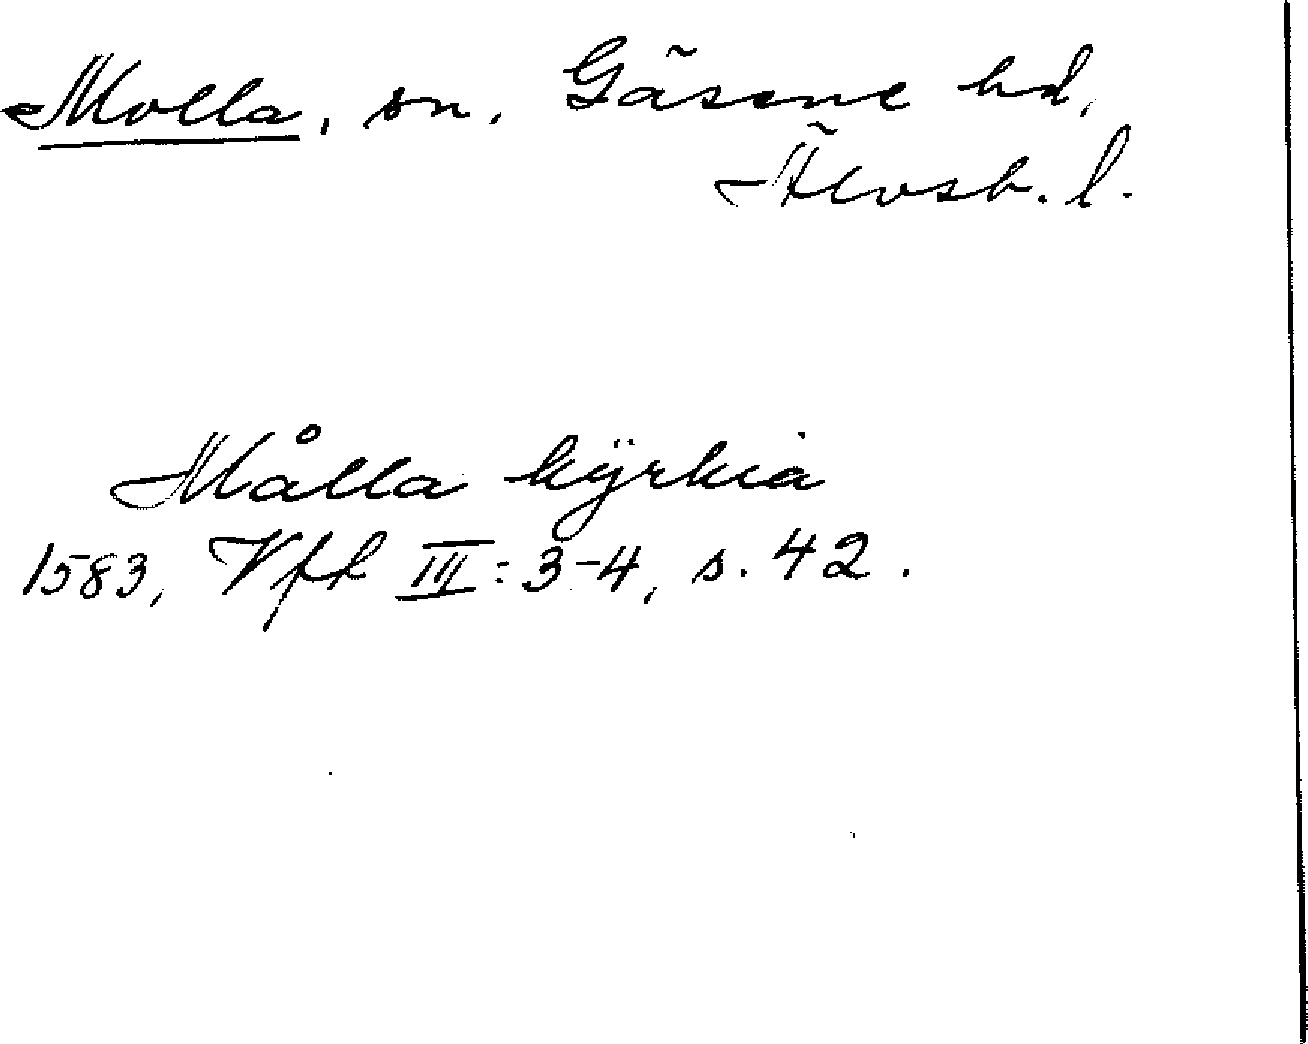 Molla, sn. Gäsene hd,
Älvsb. l.
Målla kÿrkia
1583, Vfk III:3-4, s. 42.